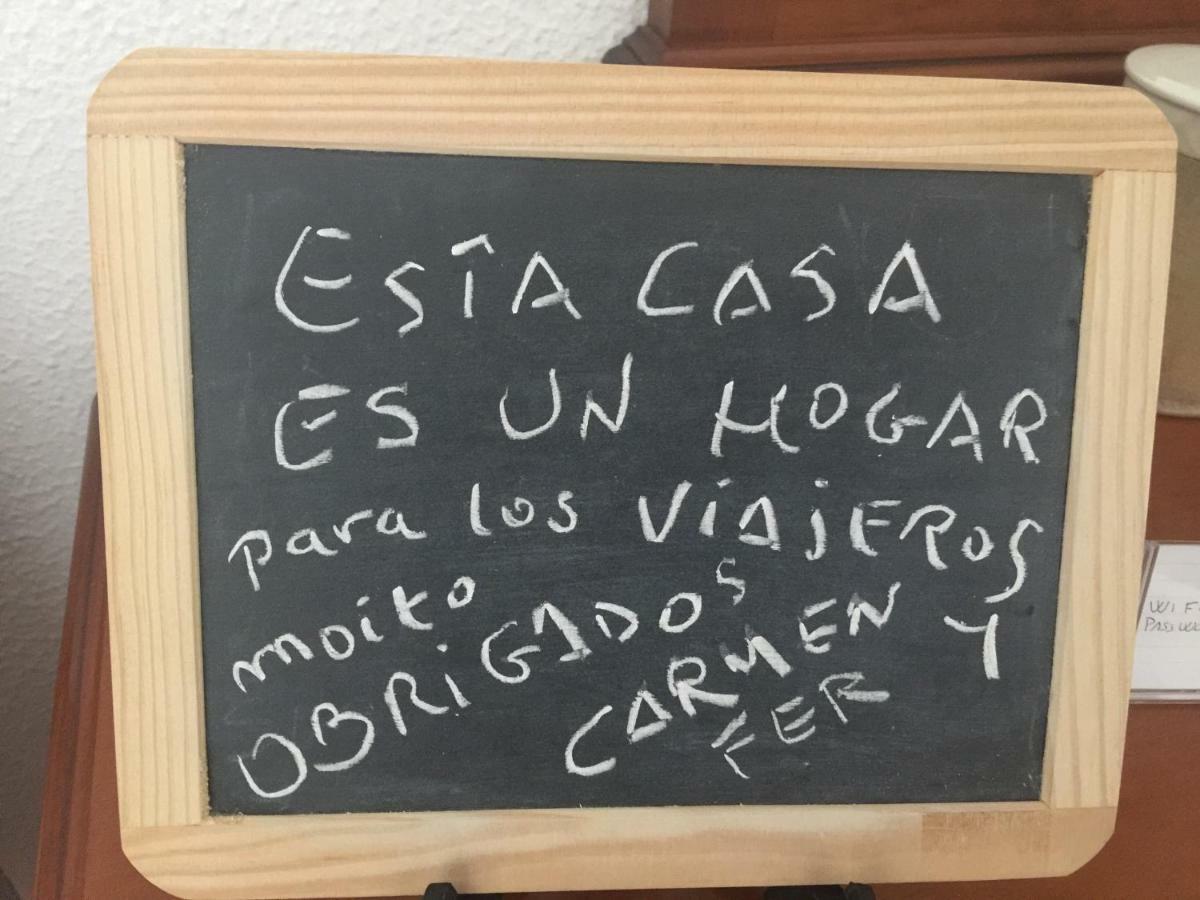 ESTA CASA
ES UN HOGAR
para los VIAJEROS
moito
OBRIGADOS
CARMEN Y
FER
WI F